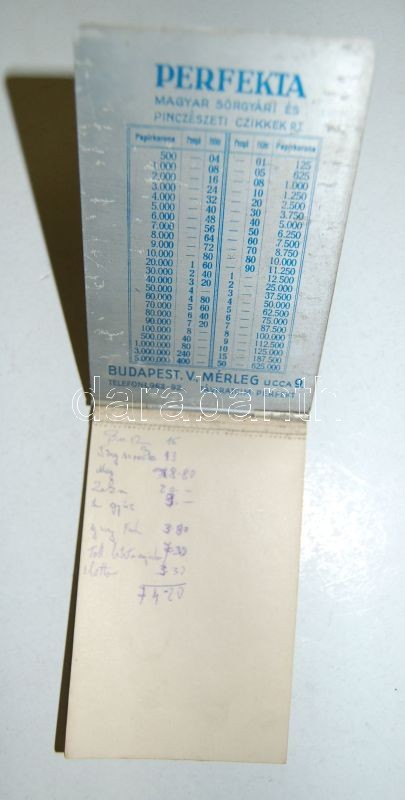 PERFEKTA
MAGYAR SÖRGYÁRI ÉS
PINCZÉSZETI CZIKKEK R.T.
Papirkorona Pengő fillér Pengő fillér Papirkorona
500 — 04 — 01 125
1.000 — 08 — 05 625
2.000 — 16 — 08 1.000
3.000 — 24 — 10 1.250
4.000 — 32 — 20 2.500
5.000 — 40 — 30 3.750
6.000 — 48 — 40 5.000
7.000 — 56 — 50 6.250
8.000 — 64 — 60 7.500
9.000 — 72 — 70 8.750
10.000 — 80 — 80 10.000
20.000 1 60 — 90 11.250
30.000 2 40 1 — 12.500
40.000 3 20 2 — 25.000
50.000 4 — 3 — 37.500
60.000 4 80 4 — 50.000
70.000 5 60 5 — 62.500
80.000 6 40 6 — 75.000
90.000 7 20 7 — 87.500
100.000 8 — 8 — 100.000
500.000 40 — 9 — 112.500
1.000.000 80 — 10 — 125.000
3.000.000 240 — 15 — 187.500
5.000.000 400 — 50 — 625.000
BUDAPEST, V. MÉRLEG UCCA 9.
TELEFON: 962-92. PERFEKT
darabanth
15
13
18.80
20.—
9.—
3 80
7.30
3 30
74-20